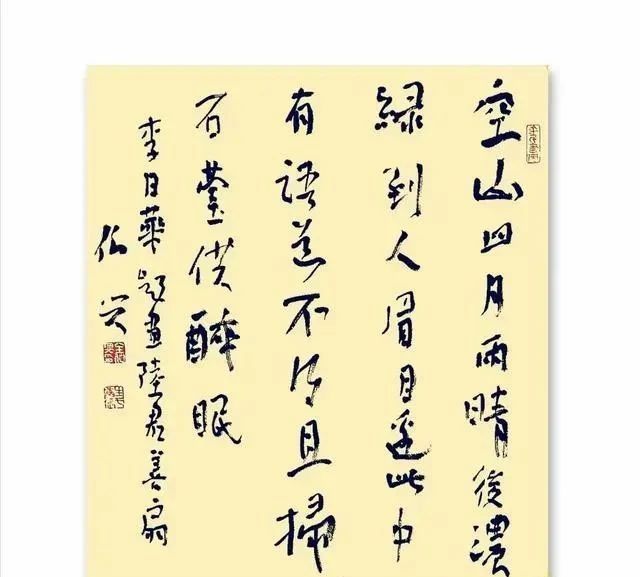 空山四月雨晴後濃
緑到人眉目邊此中
有語道不得且掃
石臺供醉眠
李日華題畫陸君善扇